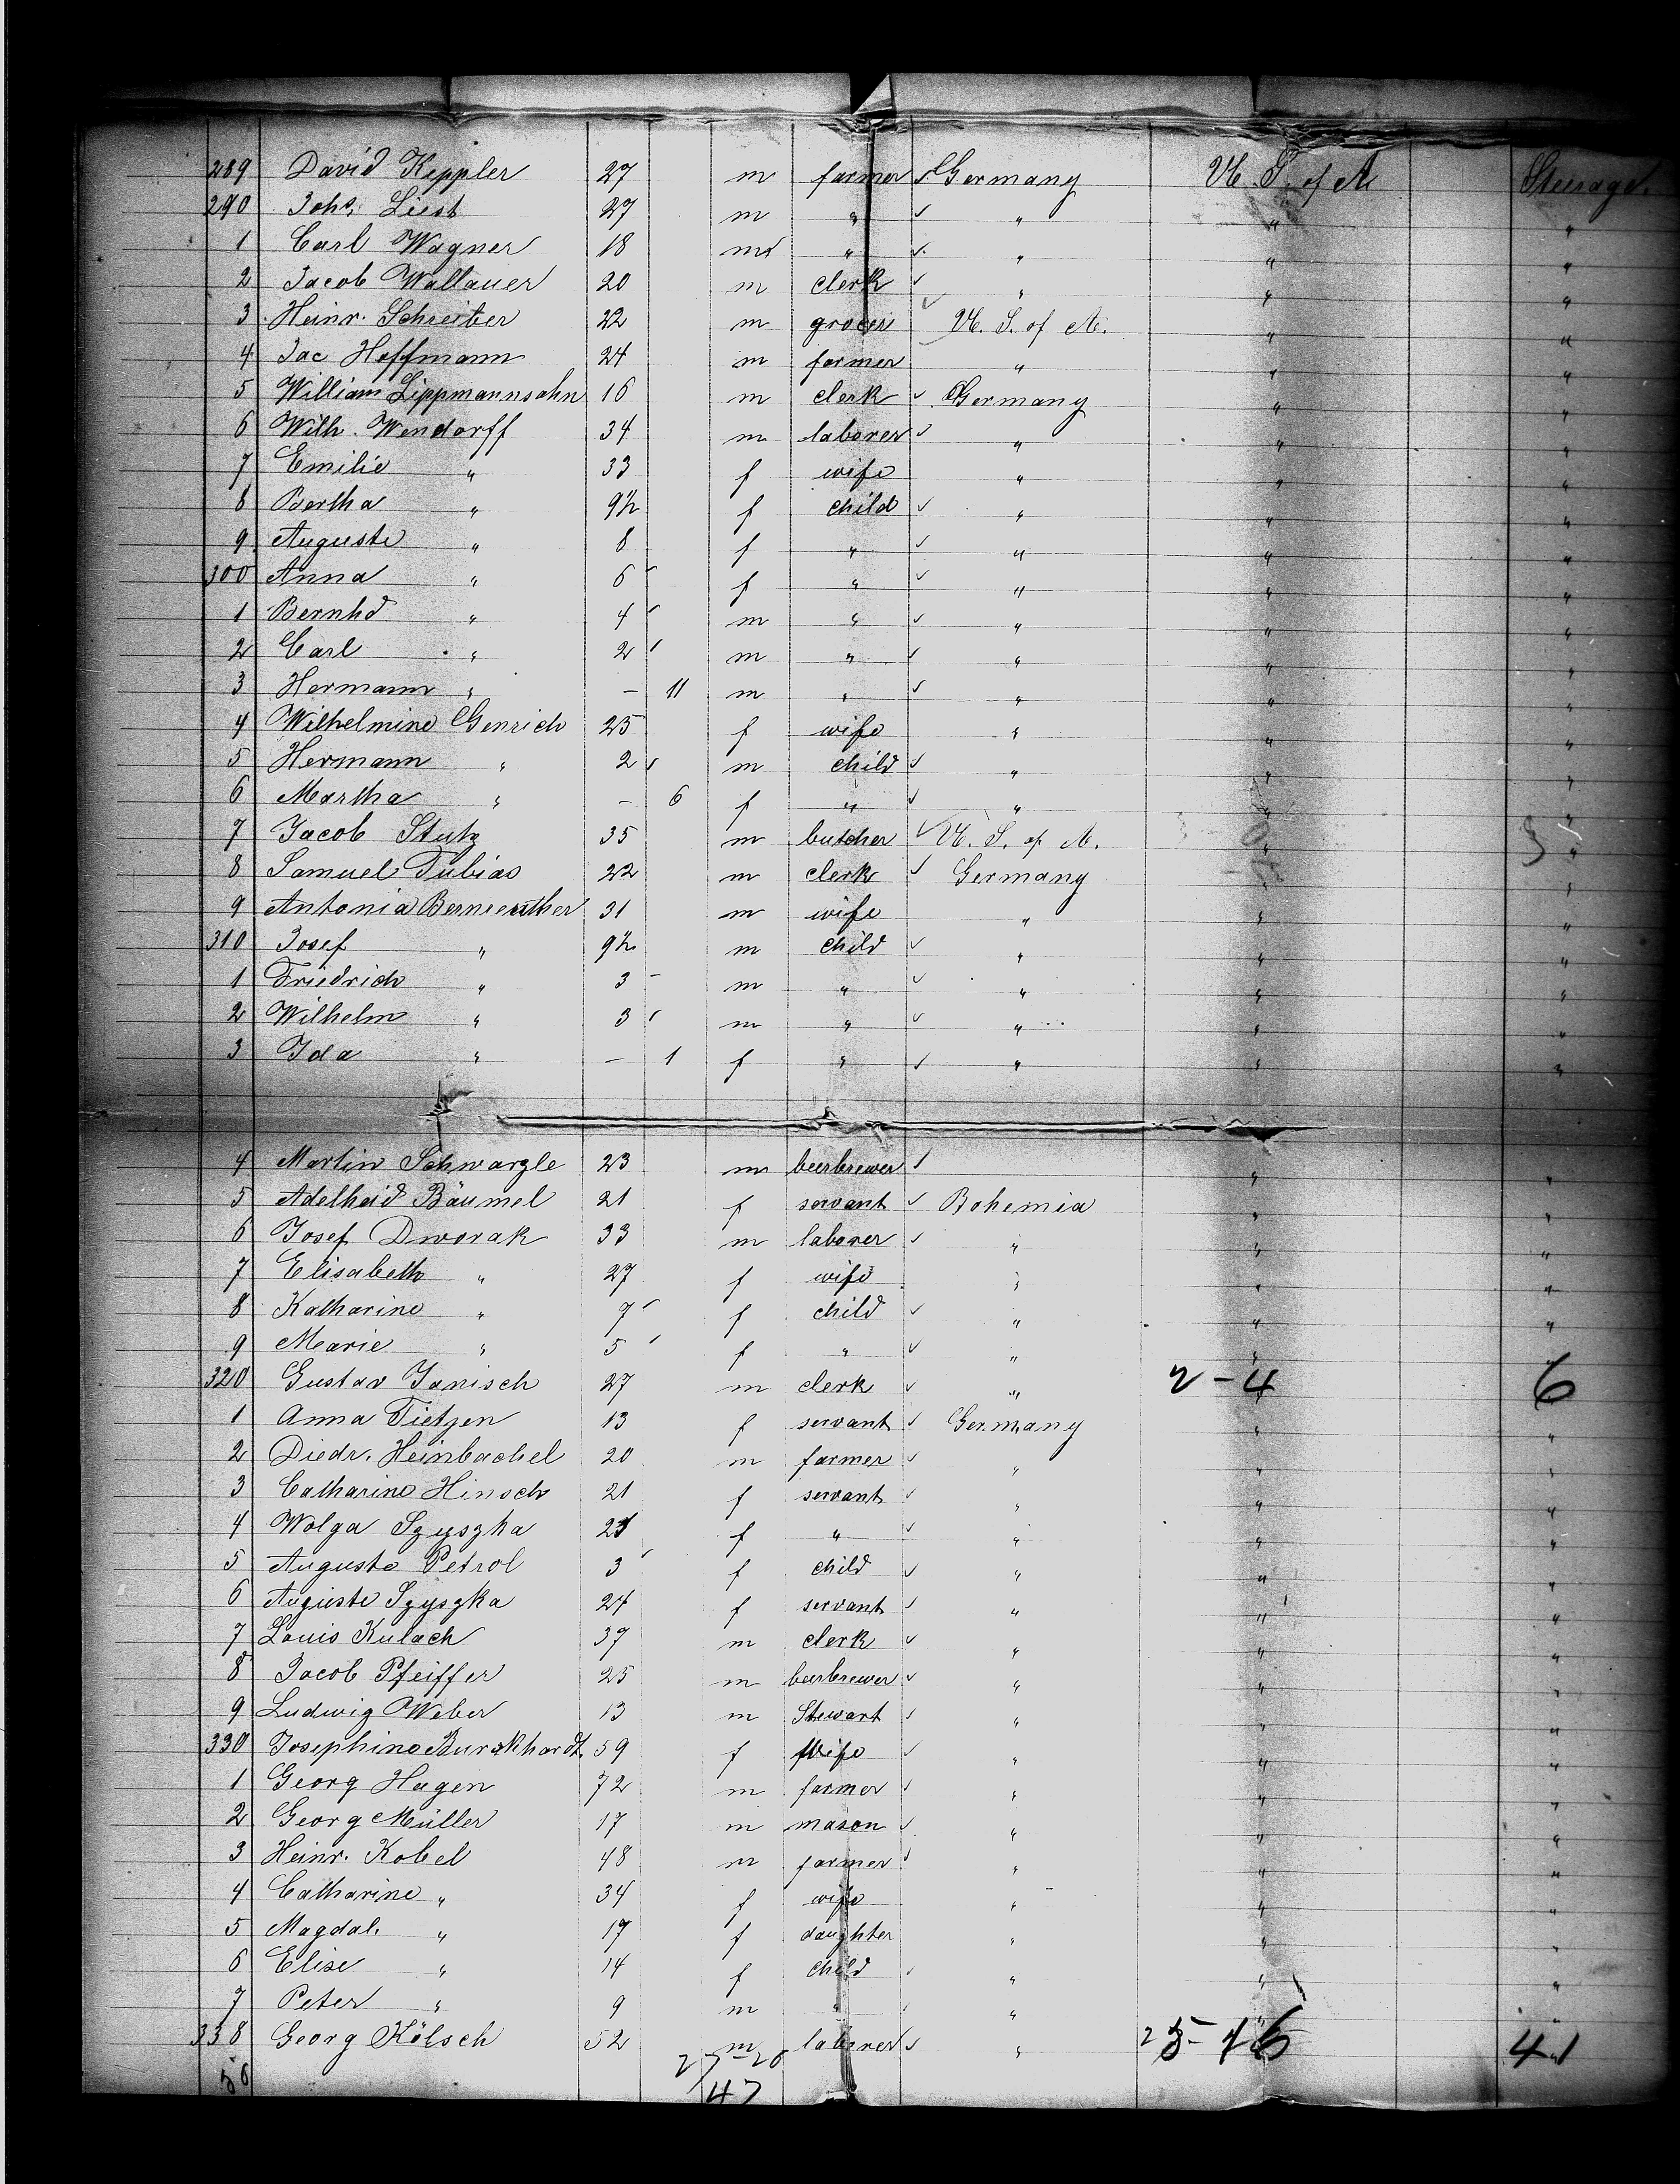 289 David Keppler 27 m farmer ✓ Germany U. S. of A Steerage.
290 Johs. Liest 27 m " ✓ " " "
1 Carl Wagner 18 m " ✓ " " "
2 Jacob Wallauer 20 m clerk ✓ " " "
3 Heinr. Schreiber 22 m grocer ✓ U. S. of A. " "
4 Jac Hoffmann 24 m farmer " " "
5 William Lippmannsohn 16 m clerk ✓ Germany " "
6 Wilh. Wendorff 34 m laborer ✓ " " "
7 Emilie " 33 f wife " " "
8 Bertha " 9½ f child ✓ " " "
9 Auguste " 8 f " ✓ " " "
300 Anna " 6 f " ✓ " " "
1 Bernhd " 4 m " ✓ " " "
2 Carl " 2 m " ✓ " " "
3 Hermann " – 11 m " ✓ " " "
4 Wilhelmine Genrich 25 f wife " " "
5 Hermann " 2 m child ✓ " " "
6 Martha " – 6 f " ✓ " " "
7 Jacob Stutz 35 m butcher ✓ U. S. of A. " "
8 Samuel Tubias 22 m clerk ✓ Germany " "
9 Antonia 31 m wife " " "
310 Josef " 9½ m child ✓ " " "
1 Friedrich " 3 m " ✓ " " "
2 Wilhelm " 3 m " ✓ " " "
3 Ida " – 1 f " ✓ " " "
4 Martin Schwarzle 23 m beerbrewer ✓ "
5 Adelheid Bäumel 21 f servant ✓ Bohemia " "
6 Josef Dworak 33 m laborer ✓ " " "
7 Elisabeth " 27 f wife " " "
8 Katharine " 7 f child ✓ " " "
9 Marie " 5 f " ✓ " "
320 Gustav Janisch 27 m clerk ✓ " 2-4 6
1 Anna Tietzen 13 f servant ✓ Germany " "
2 Diedr. Heinbachel 20 m farmer ✓ " " "
3 Catharine Hinsch 21 f servant ✓ " " "
4 Wolga Szyszka 21 f " ✓ " " "
5 Auguste Petrol 3 f child ✓ " " "
6 Auguste Szyszka 24 f servant ✓ " " "
7 Louis Kulach 37 m clerk ✓ " " "
8 Jacob Pfeiffer 25 m beerbrewer ✓ " " "
9 Ludwig Weber 13 m Stewart ✓ " " "
330 Josephine Burckhardt 59 f Wife ✓ " " "
1 Georg Hagen 72 m farmer ✓ " " "
2 Georg Müller 17 m mason ✓ " " "
3 Heinr. Kobel 48 m farmer ✓ " " "
4 Catharine " 34 f wife " " "
5 Magdal. " 17 f daughter " " "
6 Elise " 14 f child ✓ " " "
7 Peter " 9 m " ✓ " " "
338 Georg Kölsch 52 m laborer ✓ " 41
47